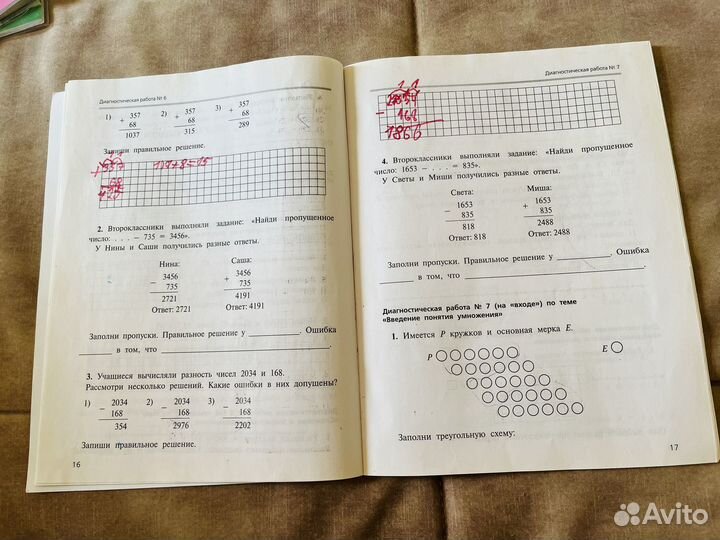 Диагностическая работа № 6
1) 357 2) 357 3) 357
+ 68 + 68 + 68
1037 315 289
Запиши правильное решение.
2. Второклассники выполняли задание: «Найди пропущенное
число: . . . − 735 = 3456».
У Нины и Саши получились разные ответы.
Нина: Саша:
− 3456 + 3456
735 735
2721 4191
Ответ: 2721 Ответ: 4191
Заполни пропуски. Правильное решение у ________. Ошибка
________ в том, что ________
3. Учащиеся вычисляли разность чисел 2034 и 168.
Рассмотри несколько решений. Какие ошибки в них допущены?
1) − 2034 2) − 2034 3) − 2034
168 168 168
354 2976 2202
Запиши правильное решение.
16
Диагностическая работа № 7
1866
4. Второклассники выполняли задание: «Найди пропущенное
число: 1653 − . . . . = 835».
У Светы и Миши получились разные ответы.
Света: Миша:
− 1653 + 1653
835 835
818 2488
Ответ: 818 Ответ: 2488
Заполни пропуски. Правильное решение у ________. Ошибка
________ в том, что ________
Диагностическая работа № 7 (на «входе») по теме
«Введение понятия умножения»
1. Имеется P кружков и основная мерка E.
P E
Заполни треугольную схему:
17
Avito